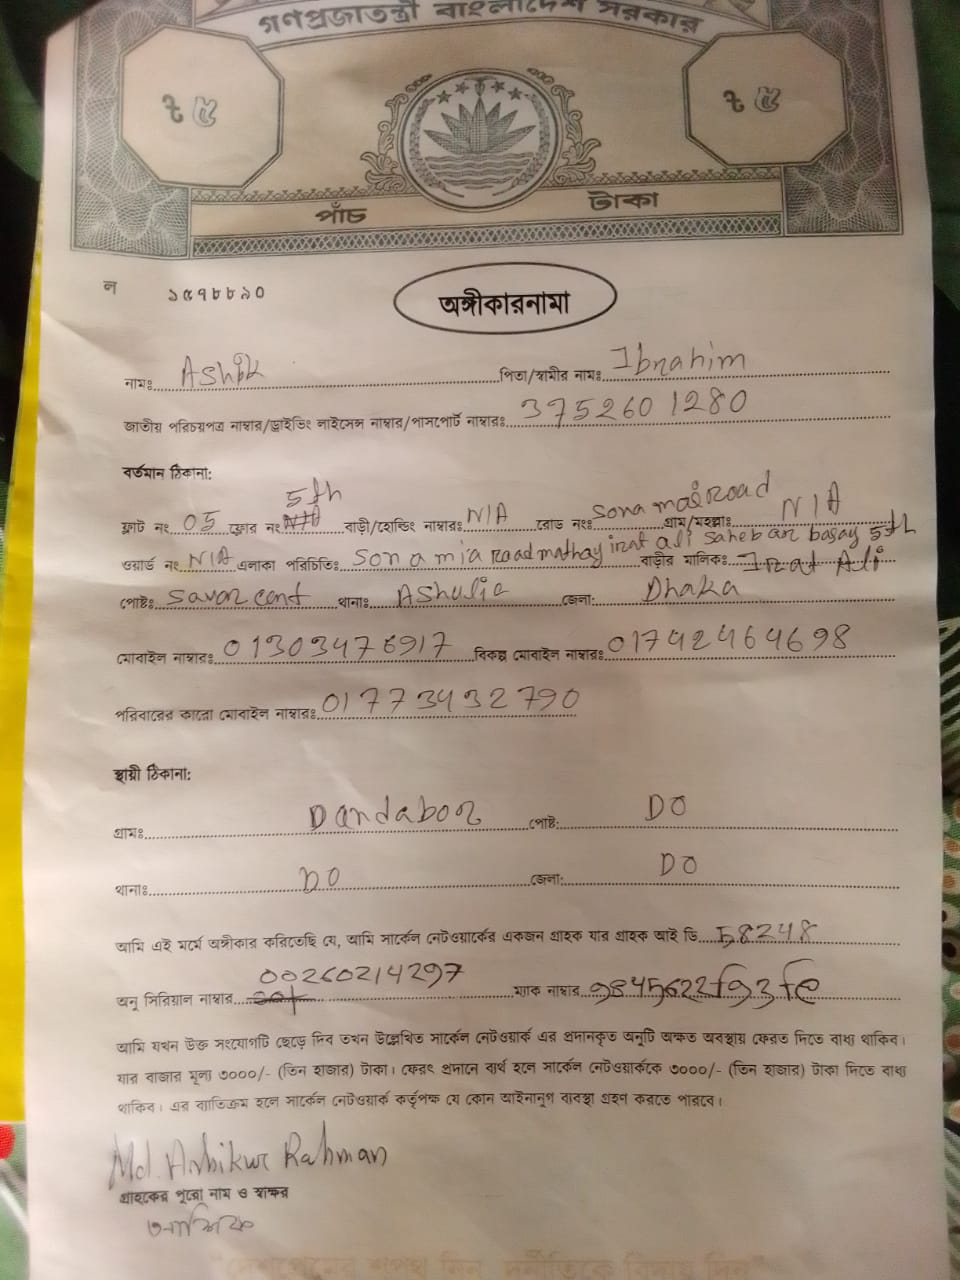 গণপ্রজাতন্ত্রী বাংলাদেশ সরকার
৳ ৫ ৳ ৫
পাঁচ টাকা
ল ১৫৭৮৮৯০
অঙ্গীকারনামা
নামঃ Ashik পিতা/স্বামীর নামঃ Ibrahim
জাতীয় পরিচয়পত্র নাম্বার/ড্রাইভিং লাইসেন্স নাম্বার/পাসপোর্ট নাম্বারঃ 3752601280
বর্তমান ঠিকানা:
ফ্লাট নং 05 ফ্লোর নং 5th বাড়ী/হোল্ডিং নাম্বারঃ N/A রোড নংঃ Sona Road গ্রাম/মহল্লাঃ N/A
ওয়ার্ড নং N/A এলাকা পরিচিতিঃ Sona mia road mathay izat ali saheber basay 5th বাড়ীর মালিকঃ Izat Ali
পোষ্টঃ Savar cent থানাঃ Ashulia জেলা: Dhaka
মোবাইল নাম্বারঃ 01303476917 বিকল্প মোবাইল নাম্বারঃ 01742464698
পরিবারের কারো মোবাইল নাম্বারঃ 017773432790
স্থায়ী ঠিকানা:
গ্রামঃ Dandabor পোষ্ট: DO
থানাঃ DO জেলা: DO
আমি এই মর্মে অঙ্গীকার করিতেছি যে, আমি সার্কেল নেটওয়ার্কের একজন গ্রাহক যার গ্রাহক আই ডি 58248
অনু সিরিয়াল নাম্বার 00260214297 ম্যাক নাম্বার 9845622f93fe
আমি যখন উক্ত সংযোগটি ছেড়ে দিব তখন উল্লেখিত সার্কেল নেটওয়ার্ক এর প্রদানকৃত অনুটি অক্ষত অবস্থায় ফেরত দিতে বাধ্য থাকিব।
যার বাজার মূল্য ৩০০০/- (তিন হাজার) টাকা। ফেরৎ প্রদানে ব্যর্থ হলে সার্কেল নেটওয়ার্ককে ৩০০০/- (তিন হাজার) টাকা দিতে বাধ্য
থাকিব। এর ব্যতিক্রম হলে সার্কেল নেটওয়ার্ক কর্তৃপক্ষ যে কোন আইনানুগ ব্যবস্থা গ্রহণ করতে পারবে।
Md. Ashikur Rahman
গ্রাহকের পুরো নাম ও স্বাক্ষর
আশিক
"দেশপ্রেমের শপথ নিন, দুর্নীতিকে বিদায় দিন"